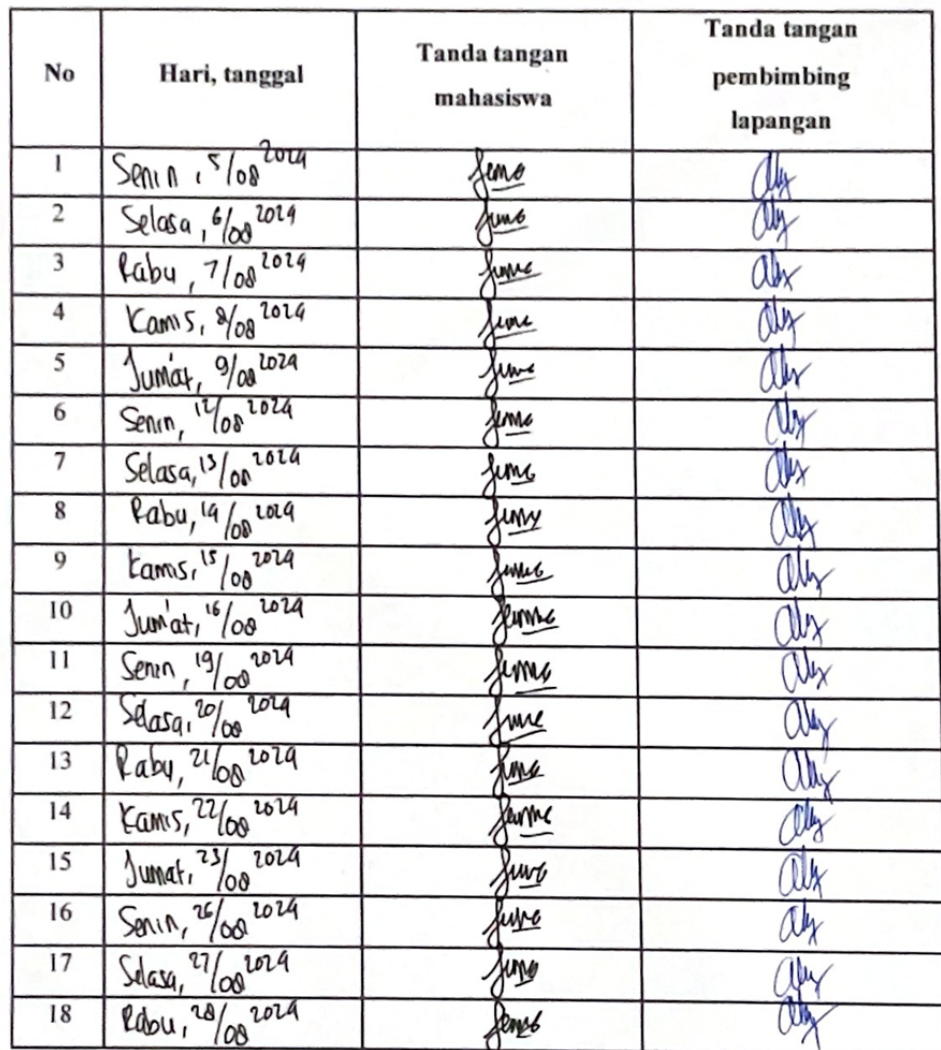 No Hari, tanggal Tanda tangan mahasiswa Tanda tangan pembimbing lapangan
1 Senin, 5/08 2024
2 Selasa, 6/08 2024
3 Rabu, 7/08 2024
4 Kamis, 8/08 2024
5 Jum'at, 9/08 2024
6 Senin, 12/08 2024
7 Selasa, 13/08 2024
8 Rabu, 14/08 2024
9 Kamis, 15/08 2024
10 Jum'at, 16/08 2024
11 Senin, 19/08 2024
12 Selasa, 20/08 2024
13 Rabu, 21/08 2024
14 Kamis, 22/08 2024
15 Jumat, 23/08 2024
16 Senin, 26/08 2024
17 Selasa, 27/08 2024
18 Rabu, 28/08 2024